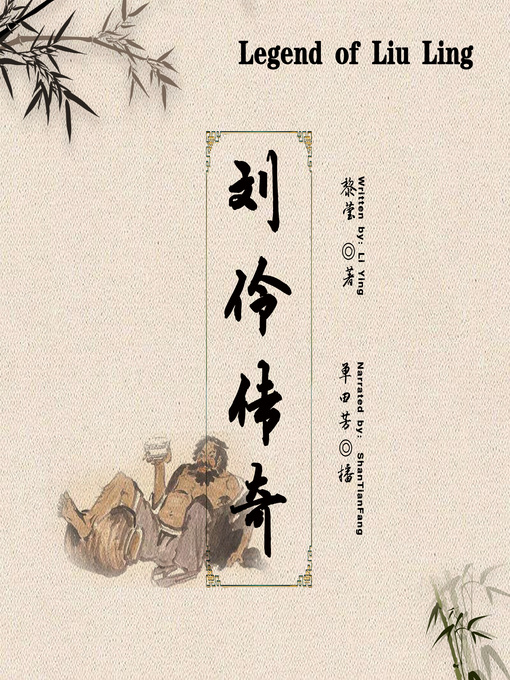 Legend of Liu Ling
刘伶传奇
黎莹◎著
Written by: Li Ying
单田芳◎播
Narrated by: ShanTianFang